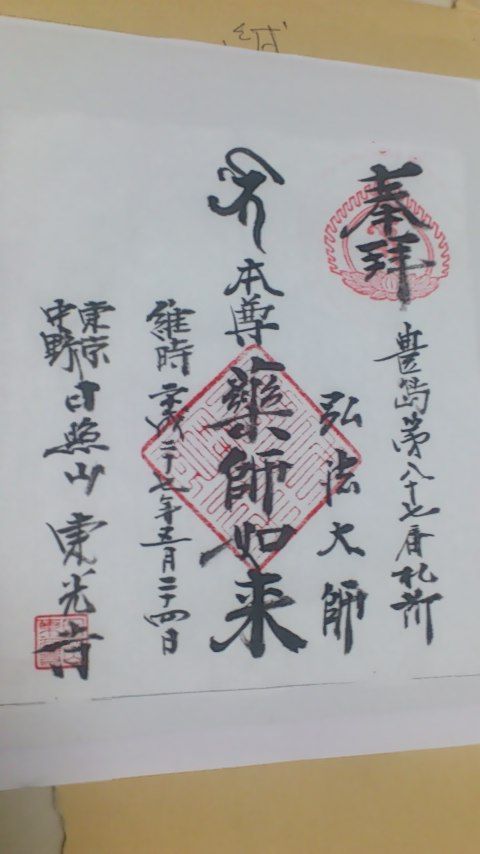 奉拝
豊島第八十七番札所
弘法大師
本尊
薬師如来
維時平成二十七年五月二十四日
東京
中野
日照山
東光寺